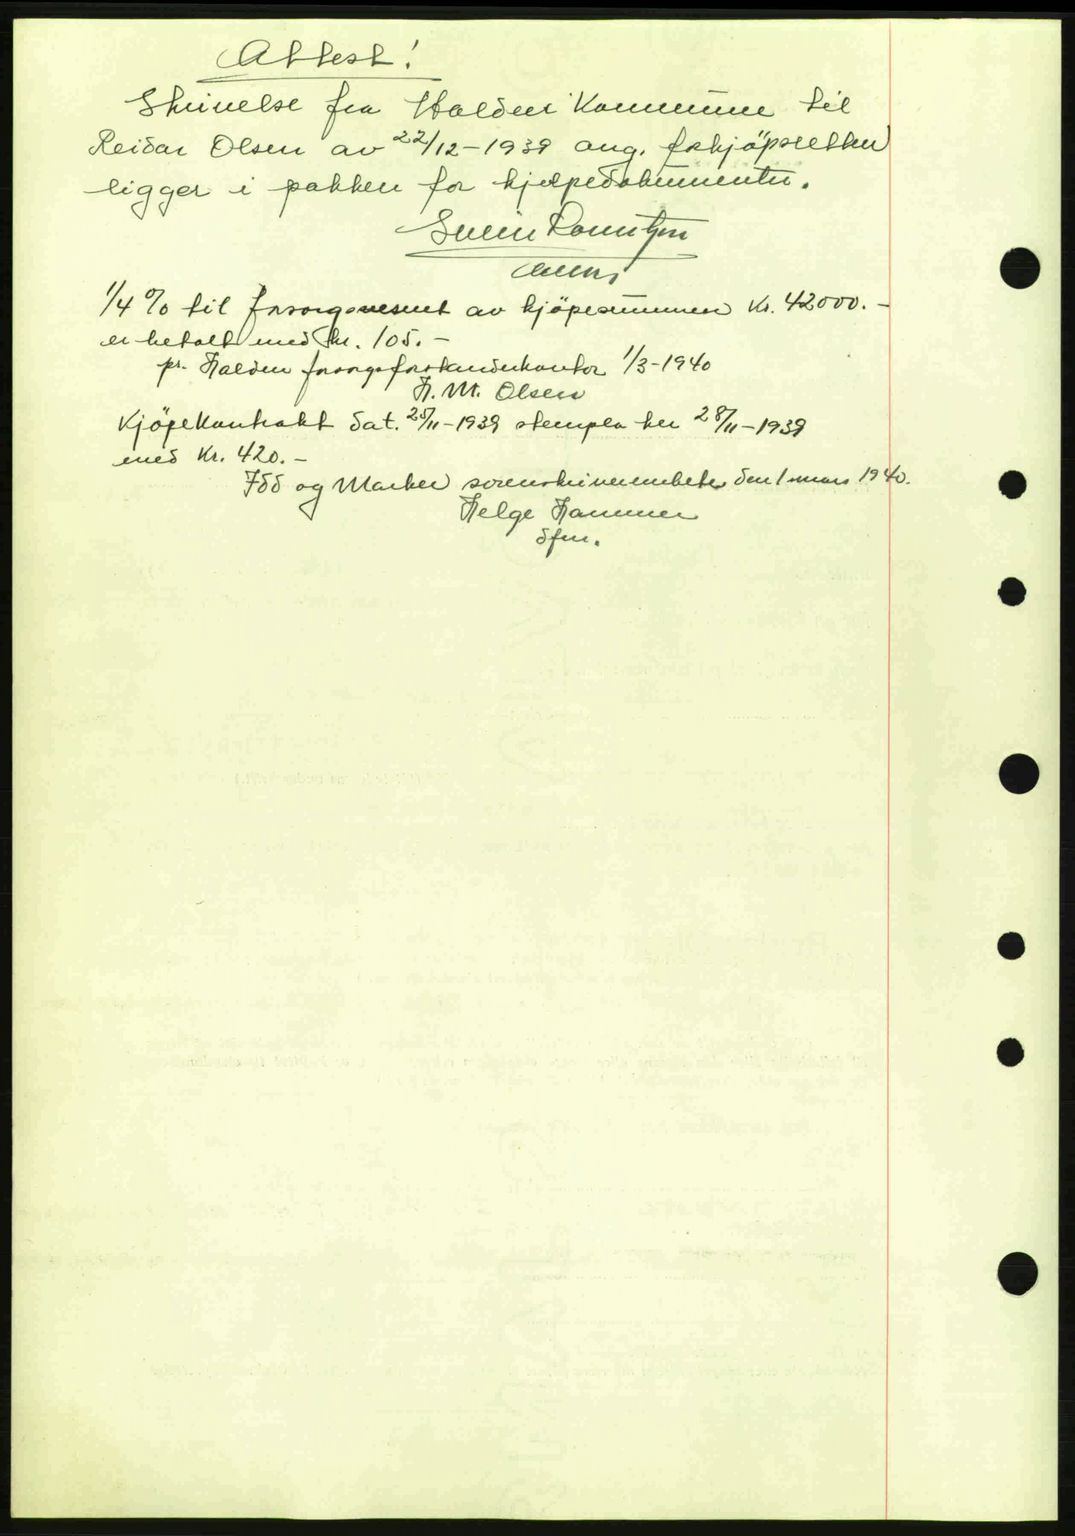 Attest!
Skrivelse fra Halden Kommune til
Reidar Olsen av 22/12-1939 ang. forkjöpsretten
ligger i pakken for hjelpedokumenter.
Svein
1/4 % til forsorgsvesenet av kjöpesummen Kr. 42000.-
er betalt med kr. 105.-
pr. Halden forsorgsforstanderkontor 1/3-1940
H. M. Olsen
Kjöpekontrakt dat. 25/11-1939 stempla her 28/11-1939
med Kr. 420.-
Idd og Marker sorenskriverembete den 1 mars 1940.
Helge Hammer
dfm.